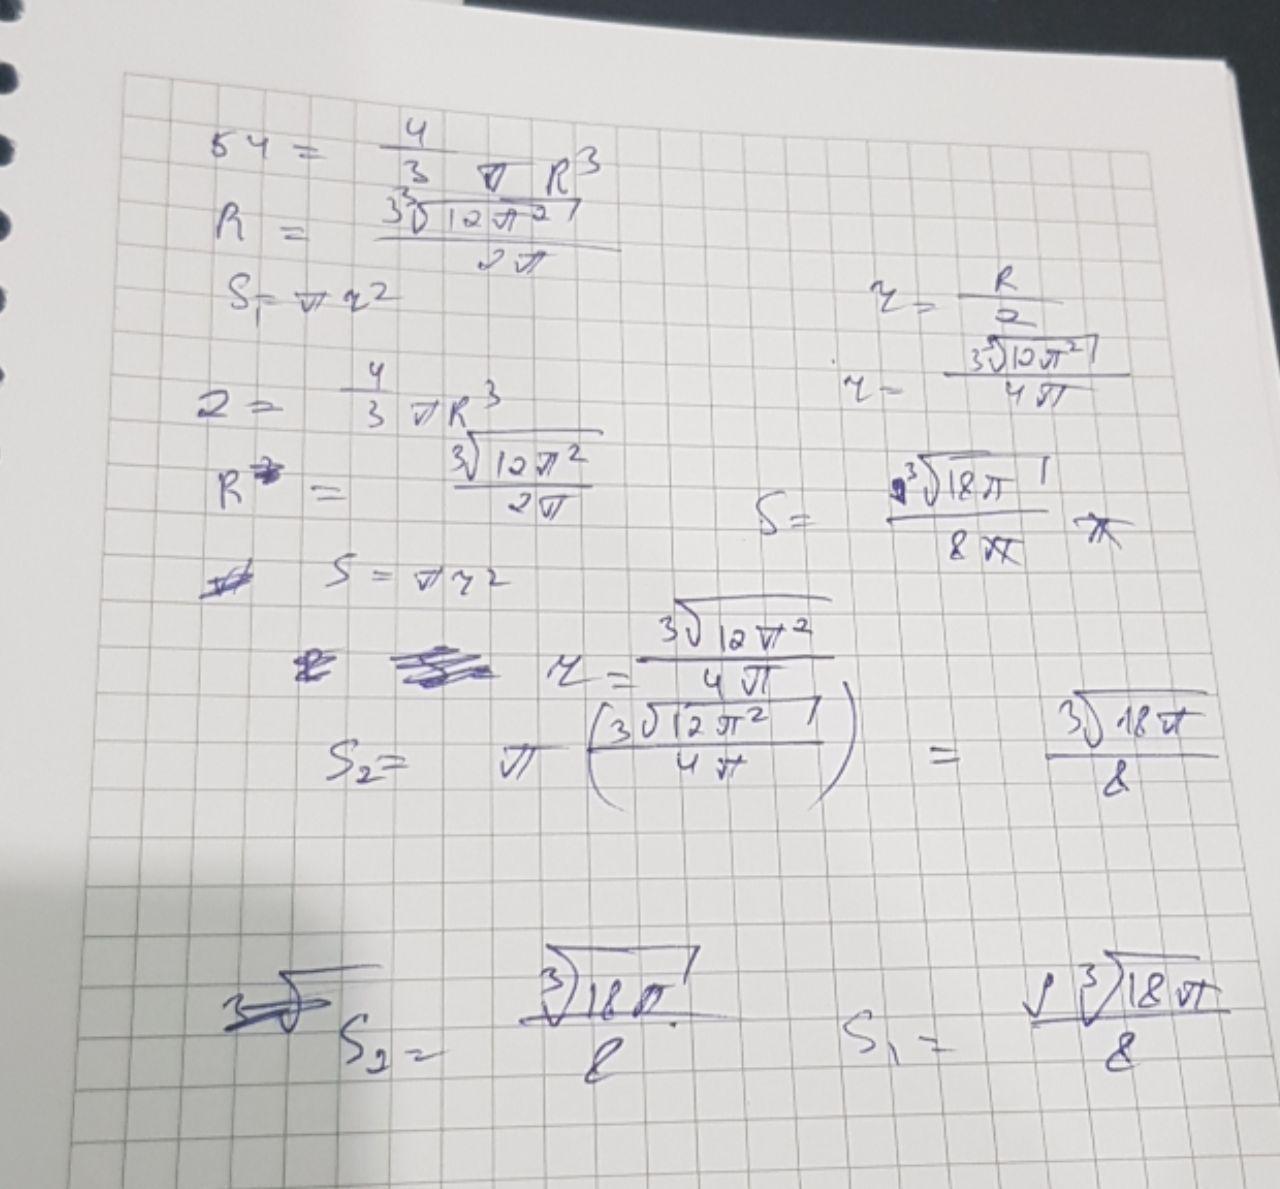 54 = 4/3 π R³
R = 3∛(12π²) / 2π
S₁ = π r²
r = R/2
r = 3∛(12π²) / 4π
2 = 4/3 π R³
R = ∛(12π²) / 2π
S = ∛(18π) / 8π π
S = π r²
r = ∛(12π²) / 4π
S₂ = π (∛(12π²) / 4π) = ∛(18π) / 8
S₂ = ∛(18π) / 8
S₁ = ∛(18π) / 8